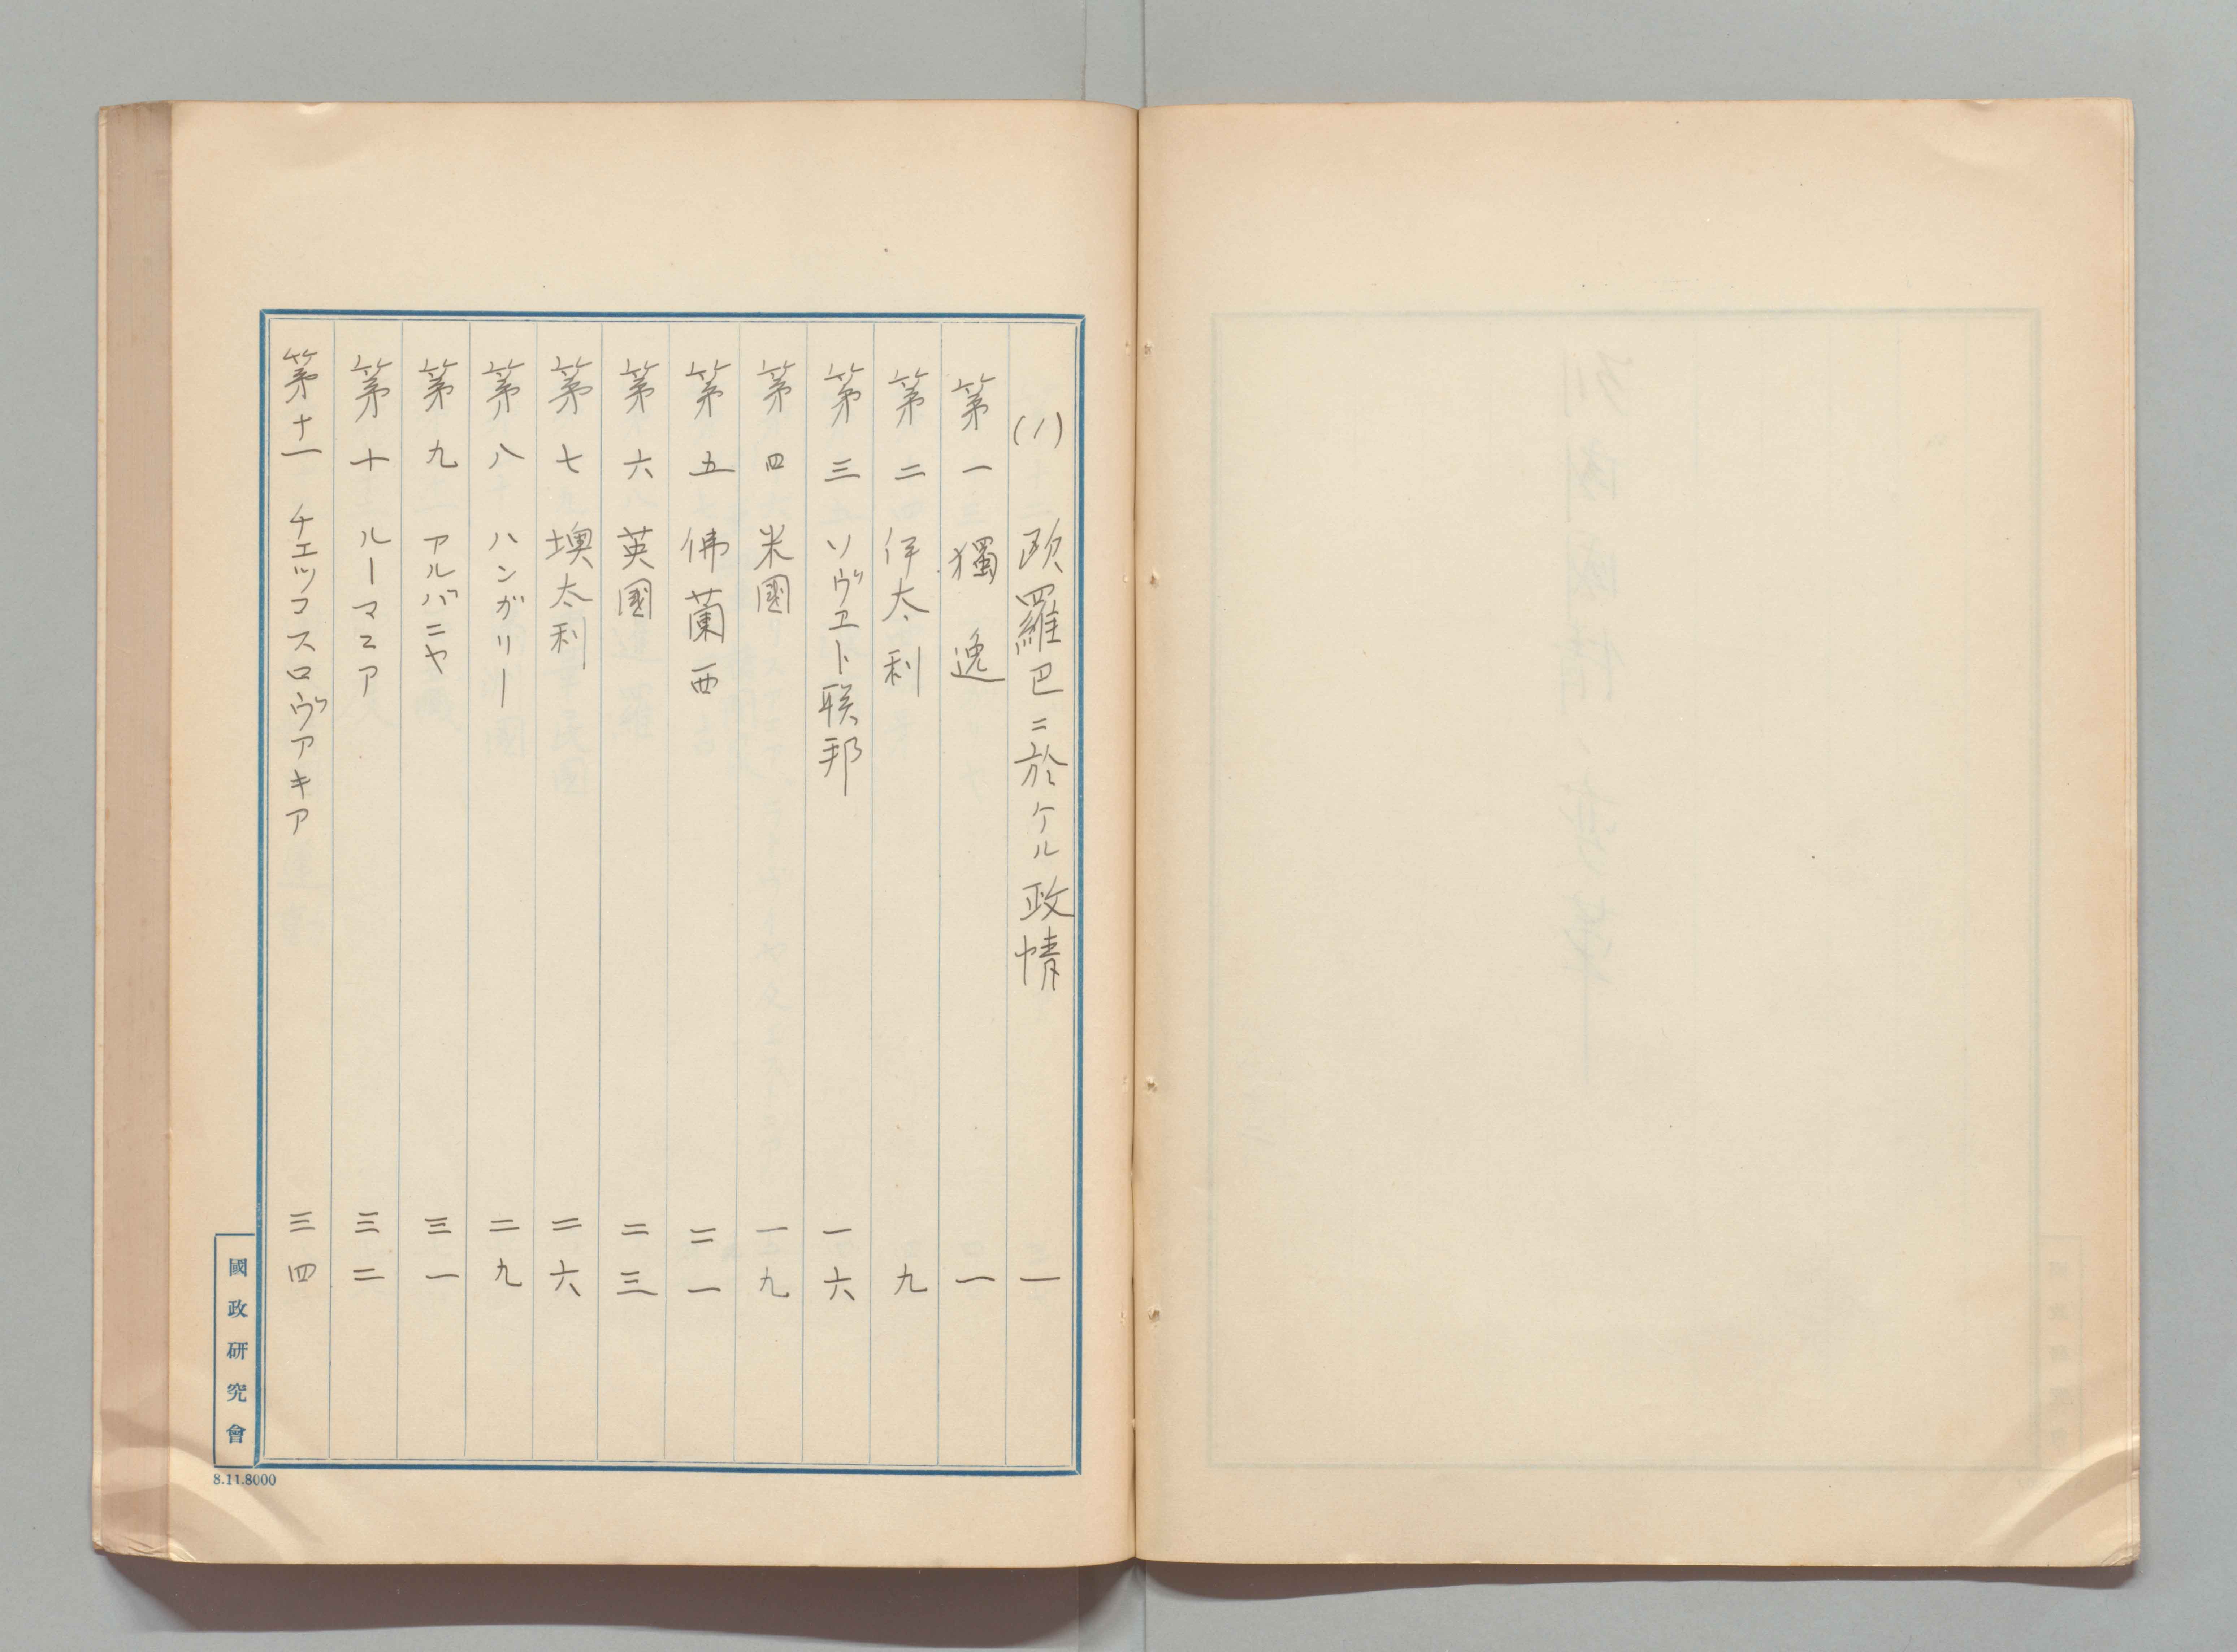 (1) 欧羅巴ニ於ケル政情 一
第一 獨逸 一
第二 伊太利 九
第三 ソヴエト聯邦 一六
第四 米國 一九
第五 佛蘭西 二一
第六 英國 二三
第七 墺太利 二六
第八 ハンガリー 二九
第九 アルバニヤ 三一
第十 ルーマニア 三二
第十一 チエツコスロヴアキア 三四
國政研究會
8.11.8000